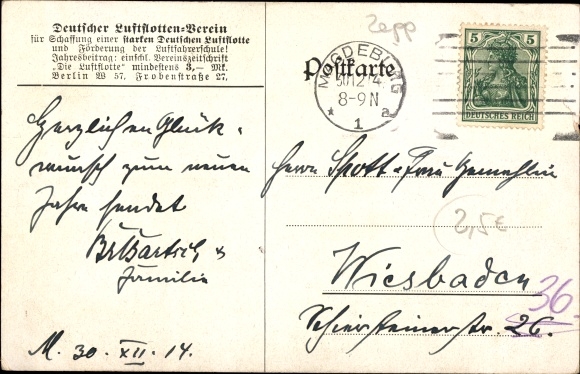 Deutscher Luftflotten-Verein
für Schaffung einer starken Deutschen Luftflotte
und Förderung der Luftfahrerschule!
Jahresbeitrag: einschl. Vereinszeitschrift
„Die Luftflotte“ mindestens 3,— Mk.
Berlin W 57, Frobenstraße 27.
Herzlichen Glück-
wunsch zum neuen
Jahre sendet
&
Familie
M. 30. XII. 14.
Zepp
Postkarte
MAGDEBURG
30.12.14
8-9 N
* 1 a
5 5
DEUTSCHES REICH
Herrn Spott u. Frau Gemahlin
2,5€
Wiesbaden
36.
Schiersteinerstr. 26.